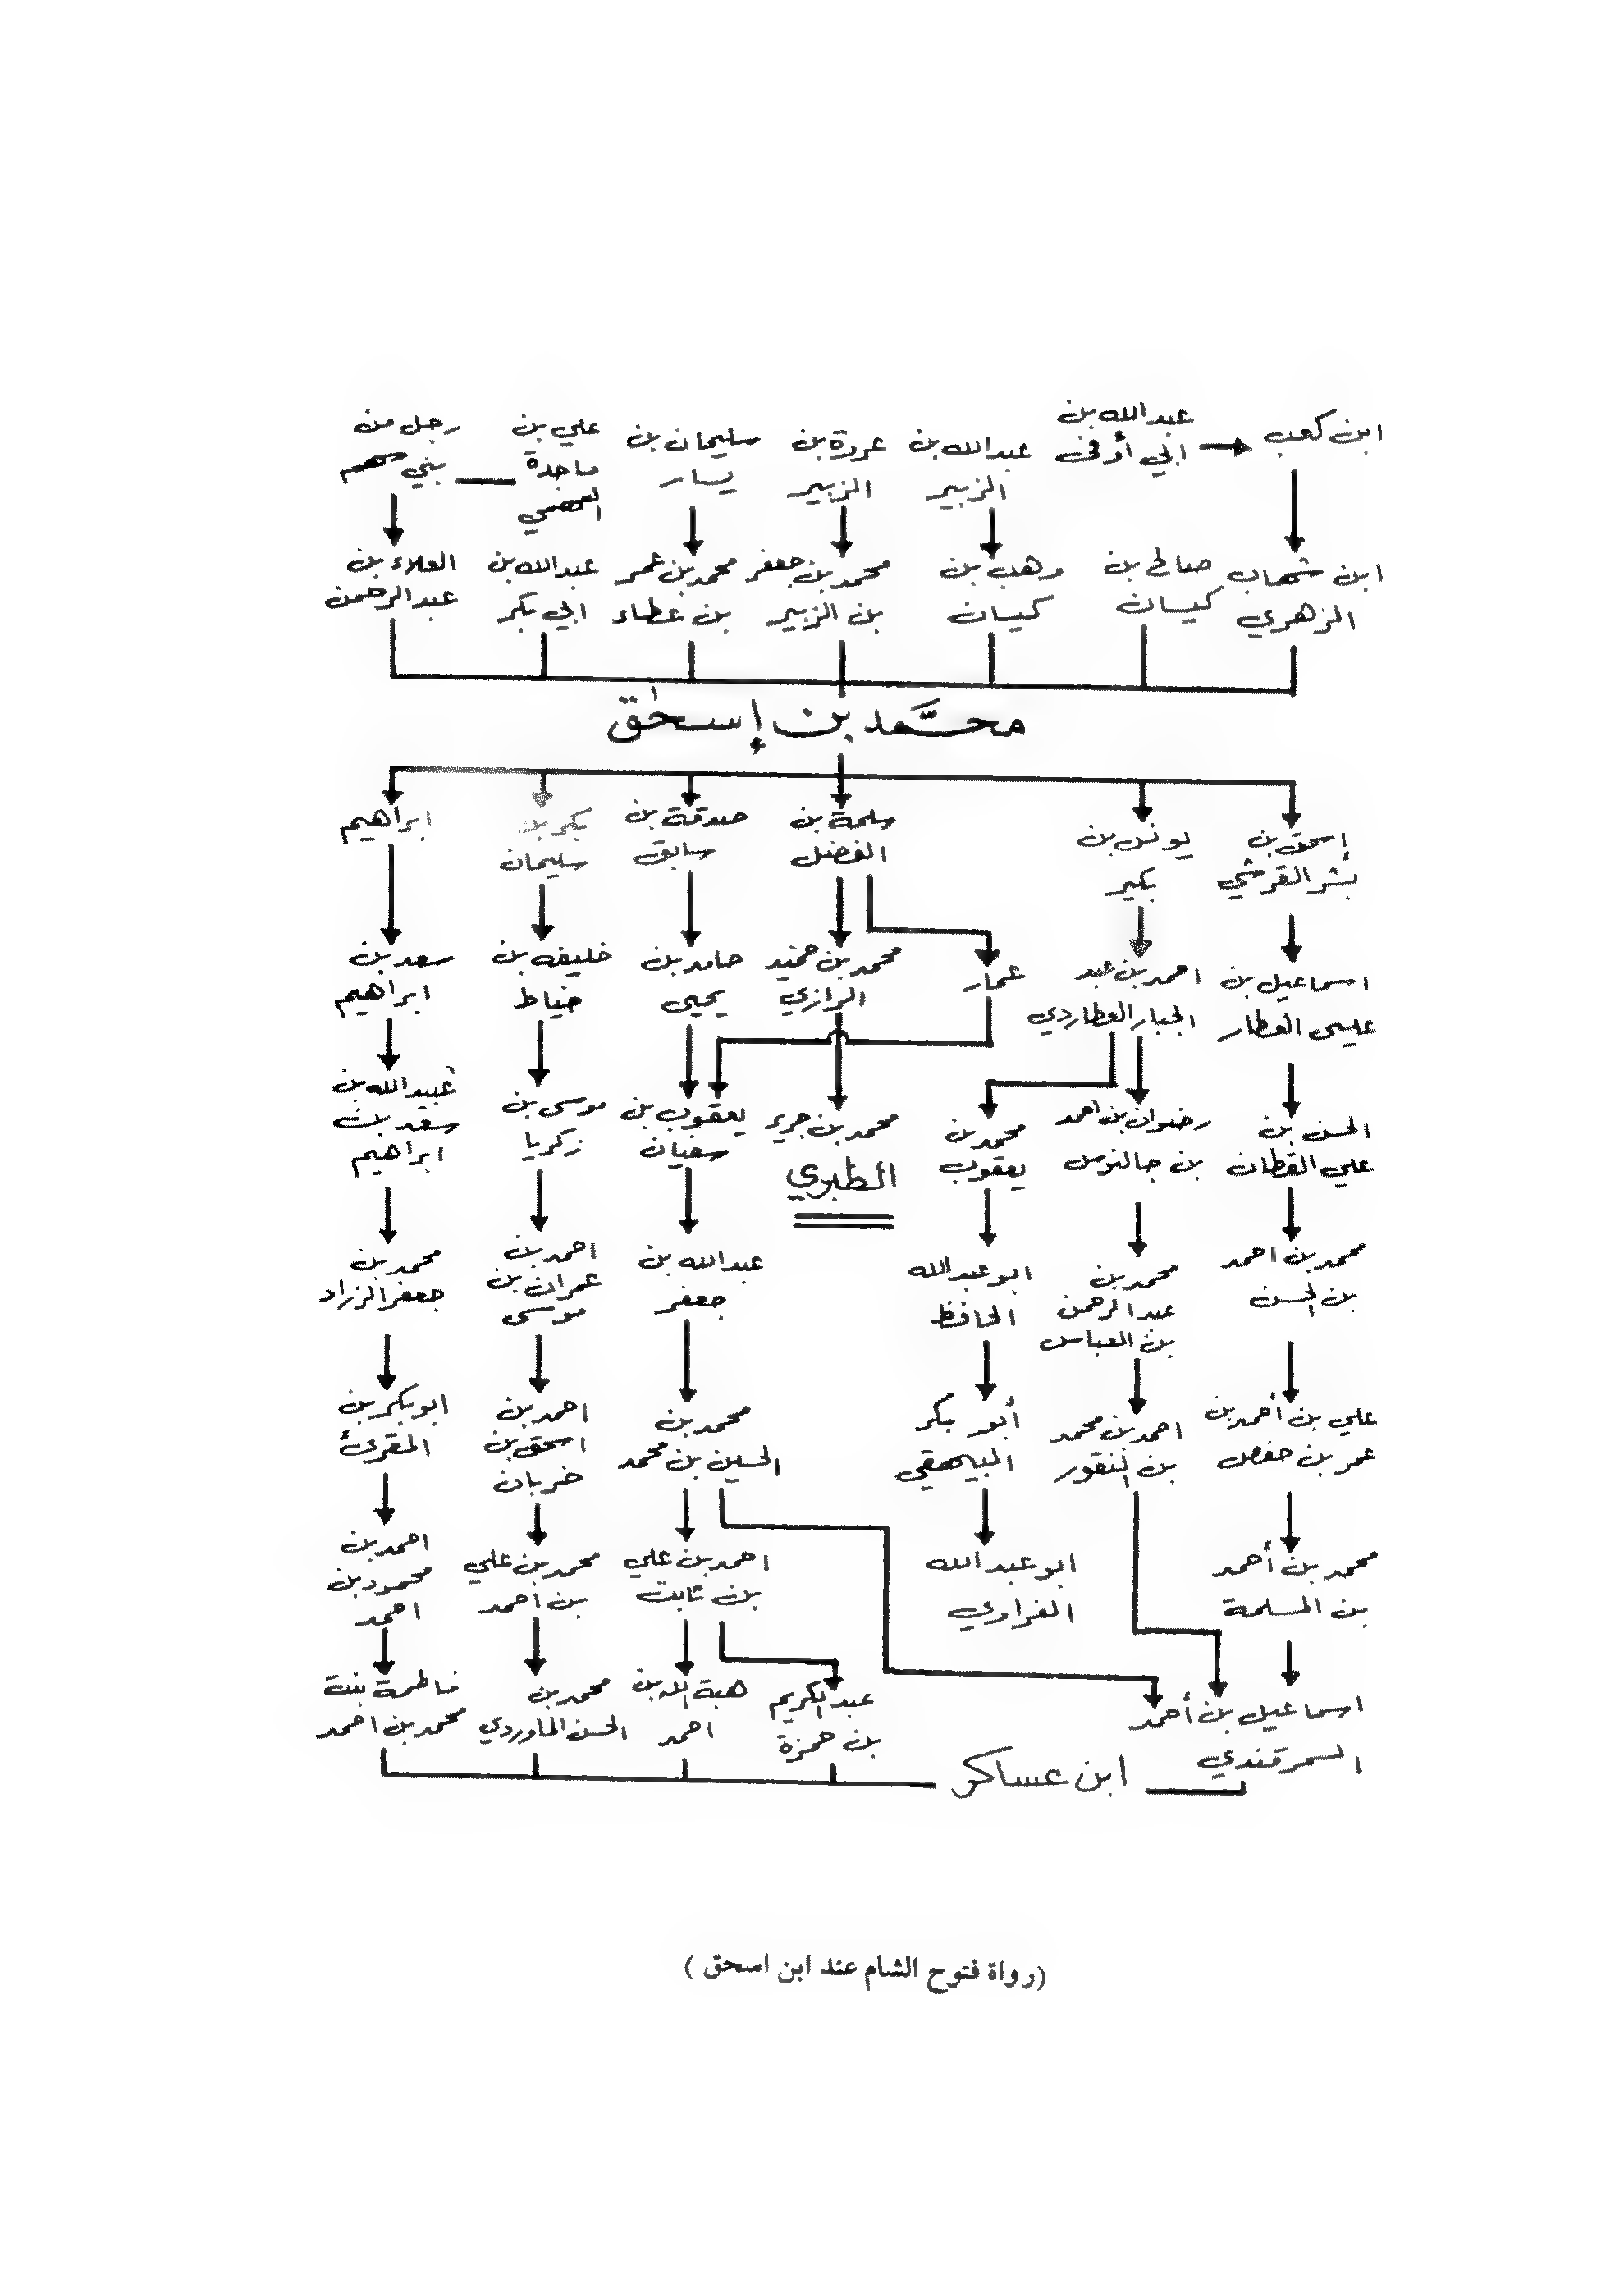 ابن كعب
عبد الله بن
ابي أوفى
عبد الله بن
الزبير
عروة بن
الزبير
سليمان بن
يسار
علي بن
ماجدة
السهمي
رجل من
بني سهم
ابن شهاب
الزهري
صالح بن
كيسان
وهب بن
كيسان
محمد بن جعفر
بن الزبير
محمد بن عمر
بن عطاء
عبد الله بن
ابي بكر
العلاء بن
عبد الرحمن
محمَّد بن إسحٰق
إسحق بن
بشر القرشي
يونس بن
بكير
سلمة بن
الفضل
صدقة بن
سابق
بكر بن
سليمان
ابراهيم
اسماعيل بن
عيسى العطار
احمد بن عبد
الجبار العطاردي
عمار
محمد بن حميد
الرازي
حامد بن
يحيى
خليفه بن
خياط
سعد بن
ابراهيم
الحسن بن
علي القطان
رضوان بن احمد
بن جالنوس
محمد بن
يعقوب
محمد بن جرير
الطبري
يعقوب بن
سفيان
موسى بن
زكريا
عبيد الله بن
سعد بن
ابراهيم
محمد بن احمد
بن الحسن
محمد بن
عبد الرحمن
بن العباس
ابو عبد الله
الحافظ
عبد الله بن
جعفر
احمد بن
عمران بن
موسى
محمد بن
جعفر الزراد
علي بن أحمد بن
عمر بن حفص
احمد بن محمد
بن النقور
أبو بكر
البيهقي
محمد بن
الحسين بن محمد
احمد بن
اسحق بن
خربان
ابو بكر بن
المقرئ
محمد بن أحمد
بن المسلمة
ابو عبد الله
الفراوي
احمد بن علي
بن ثابت
محمد بن علي
بن احمد
احمد بن
محمود بن
احمد
اسماعيل بن أحمد
السمرقندي
عبد الكريم
بن حمزة
هبة الله بن
احمد
محمد بن
الحسن الماوردي
فاطمة بنت
محمد بن احمد
ابن عساكر
(رواة فتوح الشام عند ابن اسحق)